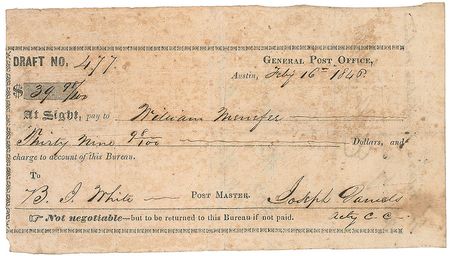 DRAFT NO. 477.
GENERAL POST OFFICE,
Austin, Feby 16th 1846
$39 98/100
At Sight, pay to William Menifee
Thirty Nine 98/100 Dollars, and
charge to account of this Bureau.
To
B. J. White POST MASTER. Joseph Daniels
☞ Not negotiable—but to be returned to this Bureau if not paid. actg C. C.